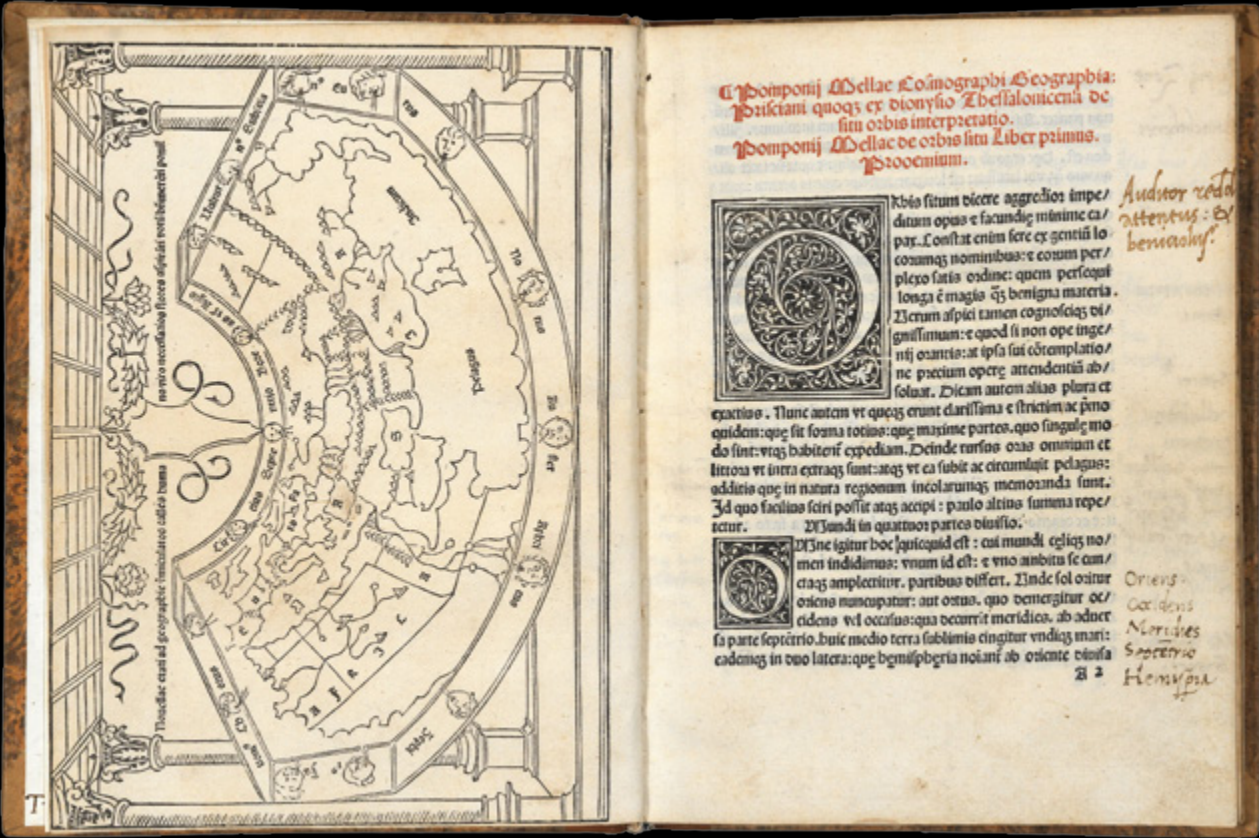 Nouellae etati ad geographie vmiculatos calles huma
no viro necessarios flores
Indicum
A F R I C A
Septē trio
Circius
Chorus
Zephi rus
Auster
Eu rus
Subsola
Vulturn⁹
T.
¶ Pomponij Mellae Cosmographi Geographia:
Prisciani quoqꝫ ex dionysio Thessalonicensi de
situ orbis interpretatio.
Pomponij Mellae de orbis situ Liber primus.
Prooemium.
Orbis situm dicere aggredior impe/
ditum opus ⁊ facundię minime ca/
pax. Constat enim fere ex gentiū lo
corumqꝫ nominibus: ⁊ eorum per/
plexo satis ordine: quem persequi
longa ē magis q̄ꝫ benigna materia.
Verum aspici tamen cognosciqꝫ di/
gnissimum: ⁊ quod si non ope inge/
nij orantis: at ipsa sui cōtemplatio/
ne precium operę attendentiū ab/
soluat. Dicam autem alias plura et
exactius. Nunc autem vt quęqꝫ erunt clarissima ⁊ strictim, ac p̄mo
quidem: quę sit forma totius: quę maxime partes. quo singulę mo
do sint: vtqꝫ habitent̄ expediam. Deinde rursus oras omnium et
littora vt intra extraqꝫ sunt: atqꝫ vt ea subit ac circumluit pelagus:
additis quę in natura regionum incolarumqꝫ memoranda sunt.
Id quo facilius sciri possit atqꝫ accipi: paulo altius summa repe/
tetur. Mundi in quattuor partes diuisio.
OMne igitur hoc quicquid est: cui mundi cęliqꝫ no/
men indidimus: vnum id est: ⁊ vno ambitu se cun/
ctaqꝫ amplectitur. partibus differt. Vnde sol oritur
oriens nuncupatur: aut ortus. quo demergitur oc/
cidens vel occasus: qua decurrit meridies. ab aduer
sa parte septētrio. huic medio terra sublimis cingitur vndiqꝫ mari:
eademqꝫ in duo latera: quę hęmisphęria noīant̄ ab oriente diuisa
A 2
Auditor redd
attentus: &
beniuolus.
Oriens.
Occidens
Meridies
Septētrio
Hemisp̄ia